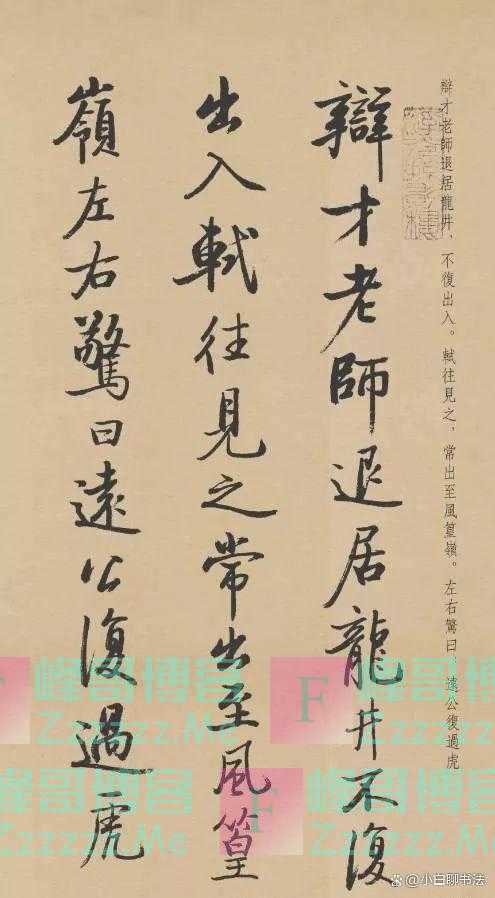 辯才老師退居龍井、不復出入。軾往見之，常出至風篁嶺。左右驚曰　遠公復過虎
辯才老師退居龍井不復
出入軾往見之常出至風篁
嶺左右驚曰遠公復過虎
峰哥博客
Zzzzzz.Me
F
峰哥博客
Zzzzzz.Me
F
峰哥博客
Zzzzzz.Me
峰哥博客
Zzzzzz.Me
@小白聊书法